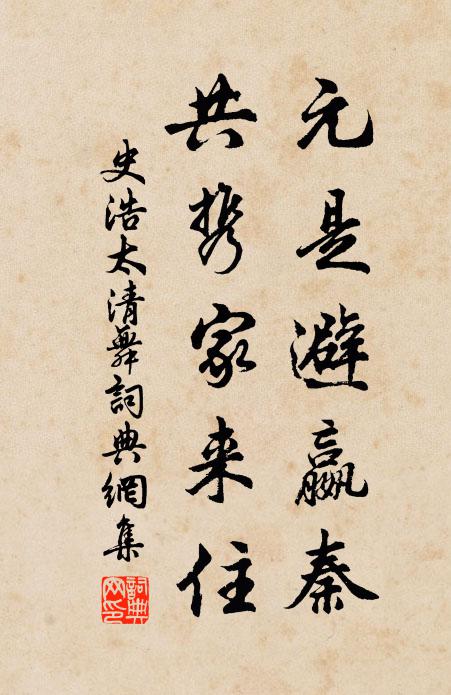 元是避嬴秦
共携家来住
史浩太清舞詞典網集
詞典網印